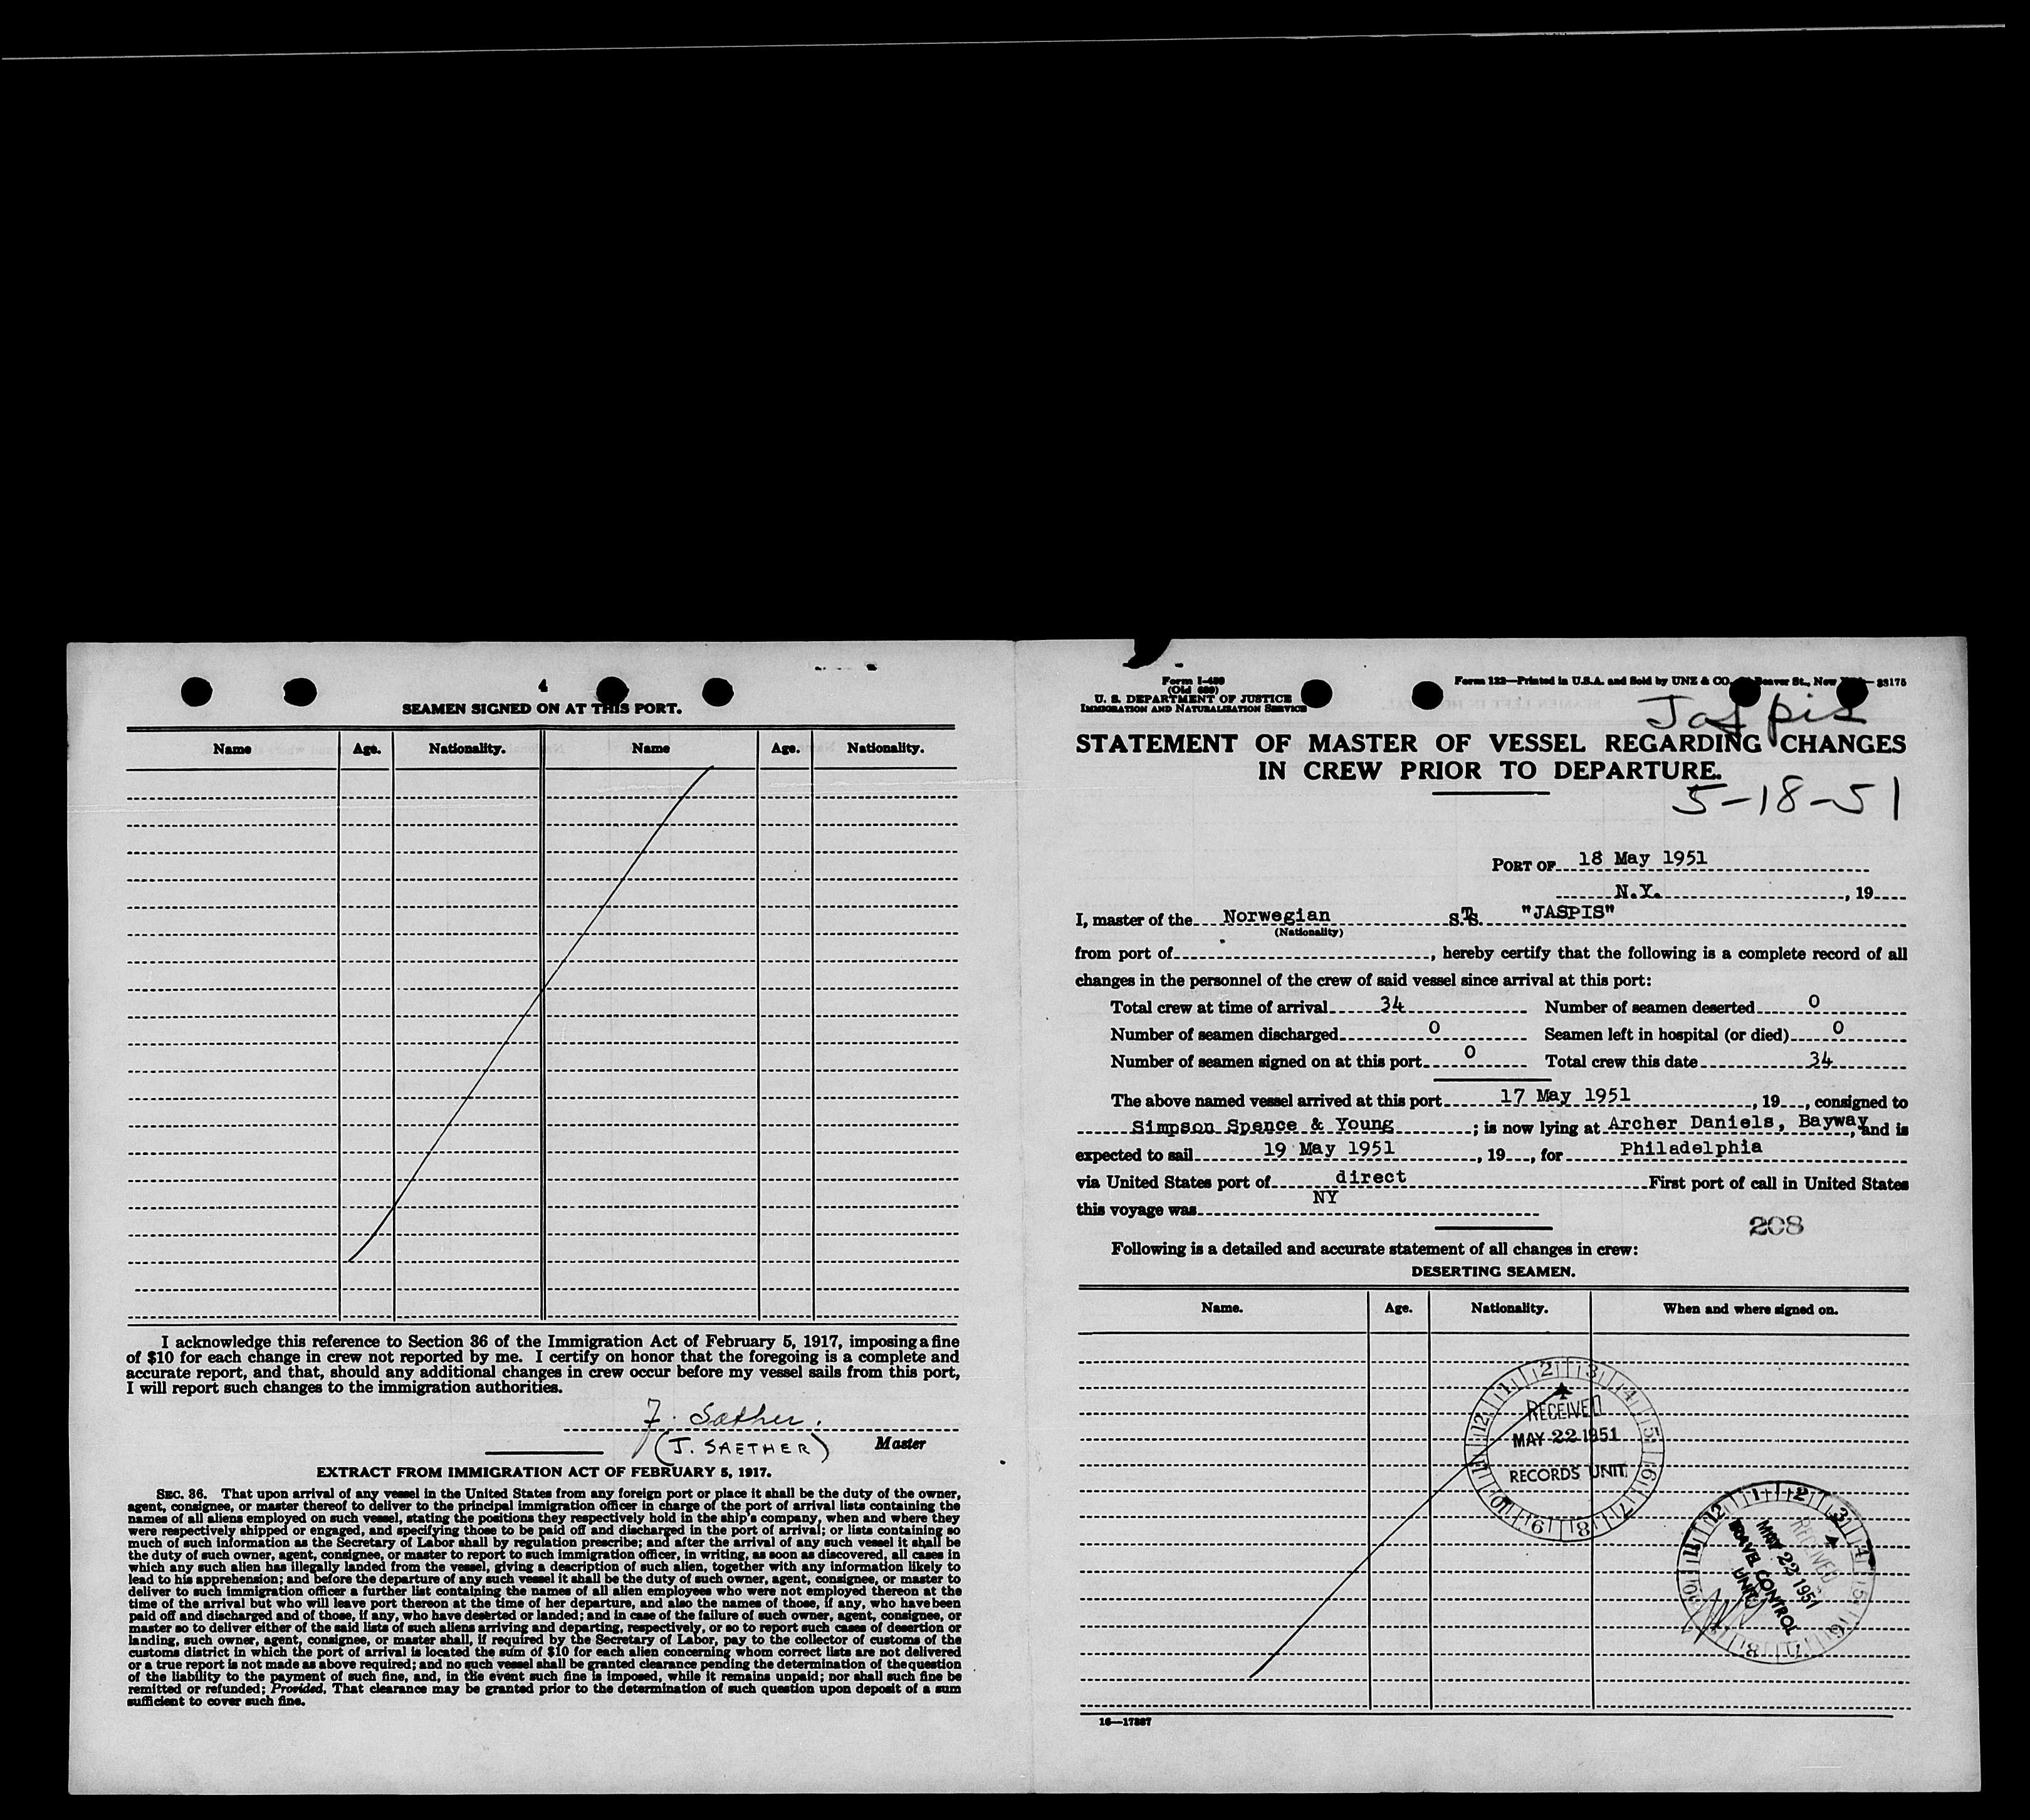 4
SEAMEN SIGNED ON AT THIS PORT.
Name Age. Nationality. Name Age. Nationality.
I acknowledge this reference to Section 36 of the Immigration Act of February 5, 1917, imposing a fine
of $10 for each change in crew not reported by me. I certify on honor that the foregoing is a complete and
accurate report, and that, should any additional changes in crew occur before my vessel sails from this port,
I will report such changes to the immigration authorities.
J. Sæther.
(J. SAETHER) Master
EXTRACT FROM IMMIGRATION ACT OF FEBRUARY 5, 1917.
SEC. 36. That upon arrival of any vessel in the United States from any foreign port or place it shall be the duty of the owner,
agent, consignee, or master thereof to deliver to the principal immigration officer in charge of the port of arrival lists containing the
names of all aliens employed on such vessel, stating the positions they respectively hold in the ship's company, when and where they
were respectively shipped or engaged, and specifying those to be paid off and discharged in the port of arrival; or lists containing so
much of such information as the Secretary of Labor shall by regulation prescribe; and after the arrival of any such vessel it shall be
the duty of such owner, agent, consignee, or master to report to such immigration officer, in writing, as soon as discovered, all cases in
which any such alien has illegally landed from the vessel, giving a description of such alien, together with any information likely to
lead to his apprehension; and before the departure of any such vessel it shall be the duty of such owner, agent, consignee, or master to
deliver to such immigration officer a further list containing the names of all alien employees who were not employed thereon at the
time of the arrival but who will leave port thereon at the time of her departure, and also the names of those, if any, who have been
paid off and discharged and of those, if any, who have deserted or landed; and in case of the failure of such owner, agent, consignee, or
master so to deliver either of the said lists of such aliens arriving and departing, respectively, or so to report such cases of desertion or
landing, such owner, agent, consignee, or master shall, if required by the Secretary of Labor, pay to the collector of customs of the
customs district in which the port of arrival is located the sum of $10 for each alien concerning whom correct lists are not delivered
or a true report is not made as above required; and no such vessel shall be granted clearance pending the determination of the question
of the liability to the payment of such fine, and, in the event such fine is imposed, while it remains unpaid; nor shall such fine be
remitted or refunded; Provided, That clearance may be granted prior to the determination of such question upon deposit of a sum
sufficient to cover such fine.
Form I-489
(Old 689)
U. S. DEPARTMENT OF JUSTICE
IMMIGRATION AND NATURALIZATION SERVICE
Form 122—Printed in U.S.A. and Sold by UNZ & CO. Beaver St., New 33175
Jaspis
STATEMENT OF MASTER OF VESSEL REGARDING CHANGES
IN CREW PRIOR TO DEPARTURE.
5-18-51
PORT OF 18 May 1951
N.Y. , 19
I, master of the Norwegian S.T.S. "JASPIS"
(Nationality)
from port of , hereby certify that the following is a complete record of all
changes in the personnel of the crew of said vessel since arrival at this port:
Total crew at time of arrival 34 Number of seamen deserted 0
Number of seamen discharged 0 Seamen left in hospital (or died) 0
Number of seamen signed on at this port 0 Total crew this date 34
The above named vessel arrived at this port 17 May 1951 , 19 , consigned to
Simpson Spence & Young ; is now lying at Archer Daniels, Bayway, and is
expected to sail 19 May 1951 , 19 , for Philadelphia
via United States port of direct First port of call in United States
this voyage was NY
208
Following is a detailed and accurate statement of all changes in crew:
DESERTING SEAMEN.
Name. Age. Nationality. When and where signed on.
RECEIVED
MAY 22 1951
RECORDS UNIT
1 2 3 4 5 6 7 8 9 10 11 12
RECEIVED
MAY 22 1951
TRAVEL CONTROL
UNIT
1 2 3 4 5 6 7 8 10 11 12
16—17887